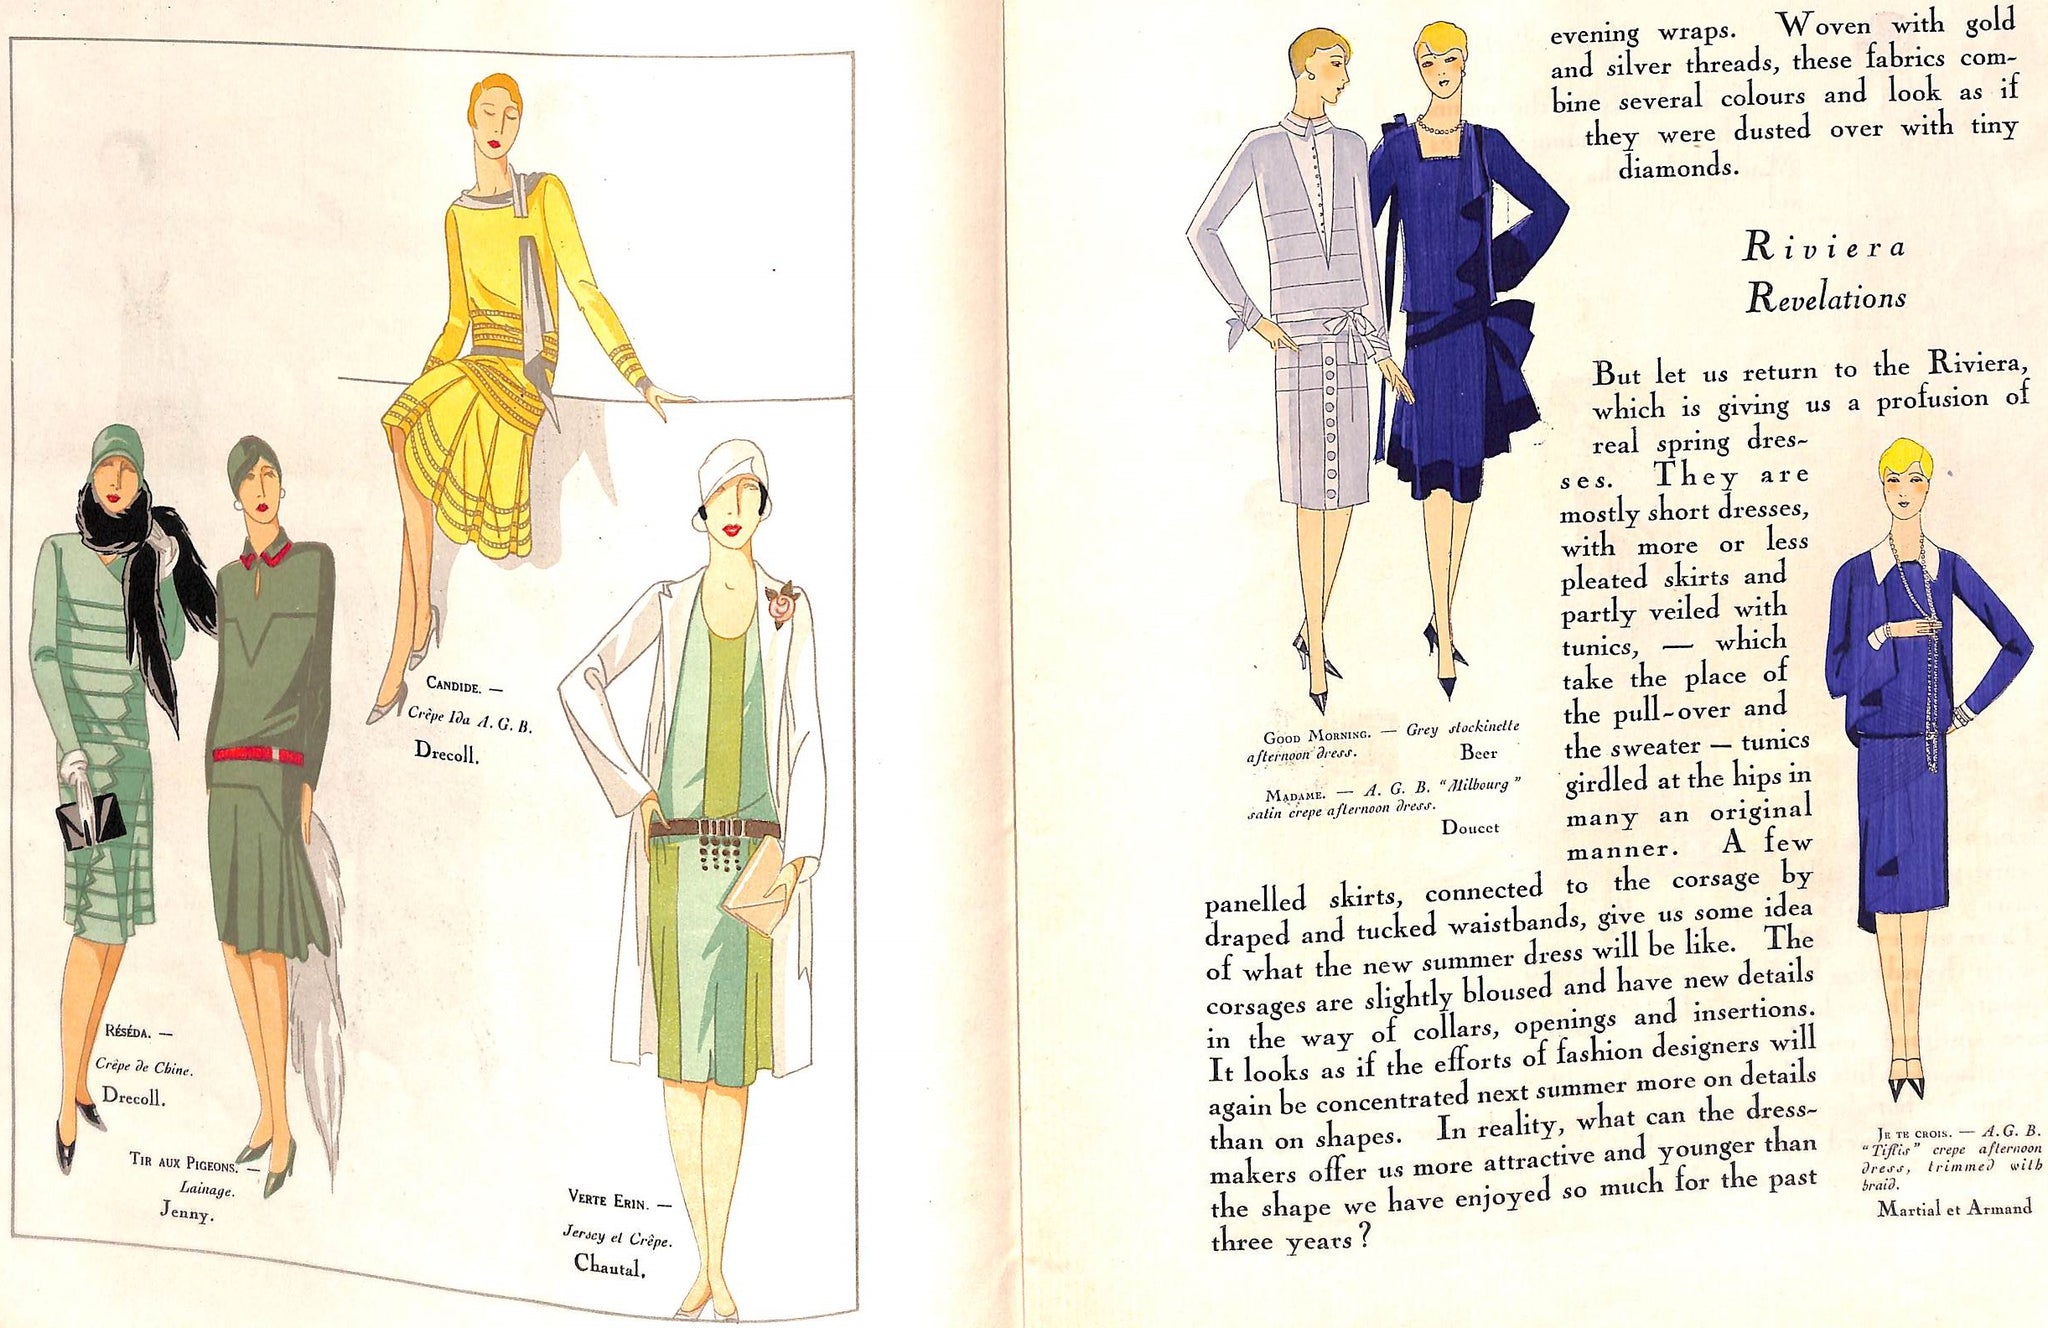 CANDIDE. —
Crêpe Ida A. G. B.
Drecoll.
RÉSÉDA. —
Crêpe de Chine.
Drecoll.
TIR AUX PIGEONS. —
Lainage.
Jenny.
VERTE ERIN. —
Jersey et Crêpe.
Chautal.
evening wraps. Woven with gold
and silver threads, these fabrics com-
bine several colours and look as if
they were dusted over with tiny
diamonds.
Riviera
Revelations
But let us return to the Riviera,
which is giving us a profusion of
real spring dres-
ses. They are
mostly short dresses,
with more or less
pleated skirts and
partly veiled with
tunics, — which
take the place of
the pull-over and
the sweater — tunics
girdled at the hips in
many an original
manner. A few
panelled skirts, connected to the corsage by
draped and tucked waistbands, give us some idea
of what the new summer dress will be like. The
corsages are slightly bloused and have new details
in the way of collars, openings and insertions.
It looks as if the efforts of fashion designers will
again be concentrated next summer more on details
than on shapes. In reality, what can the dress-
makers offer us more attractive and younger than
the shape we have enjoyed so much for the past
three years?
GOOD MORNING. — Grey stockinette
afternoon dress.
Beer
MADAME. — A. G. B. "Milbourg"
satin crepe afternoon dress.
Doucet
JE TE CROIS. — A. G. B.
"Tiflis" crepe afternoon
dress, trimmed with
braid.
Martial et Armand